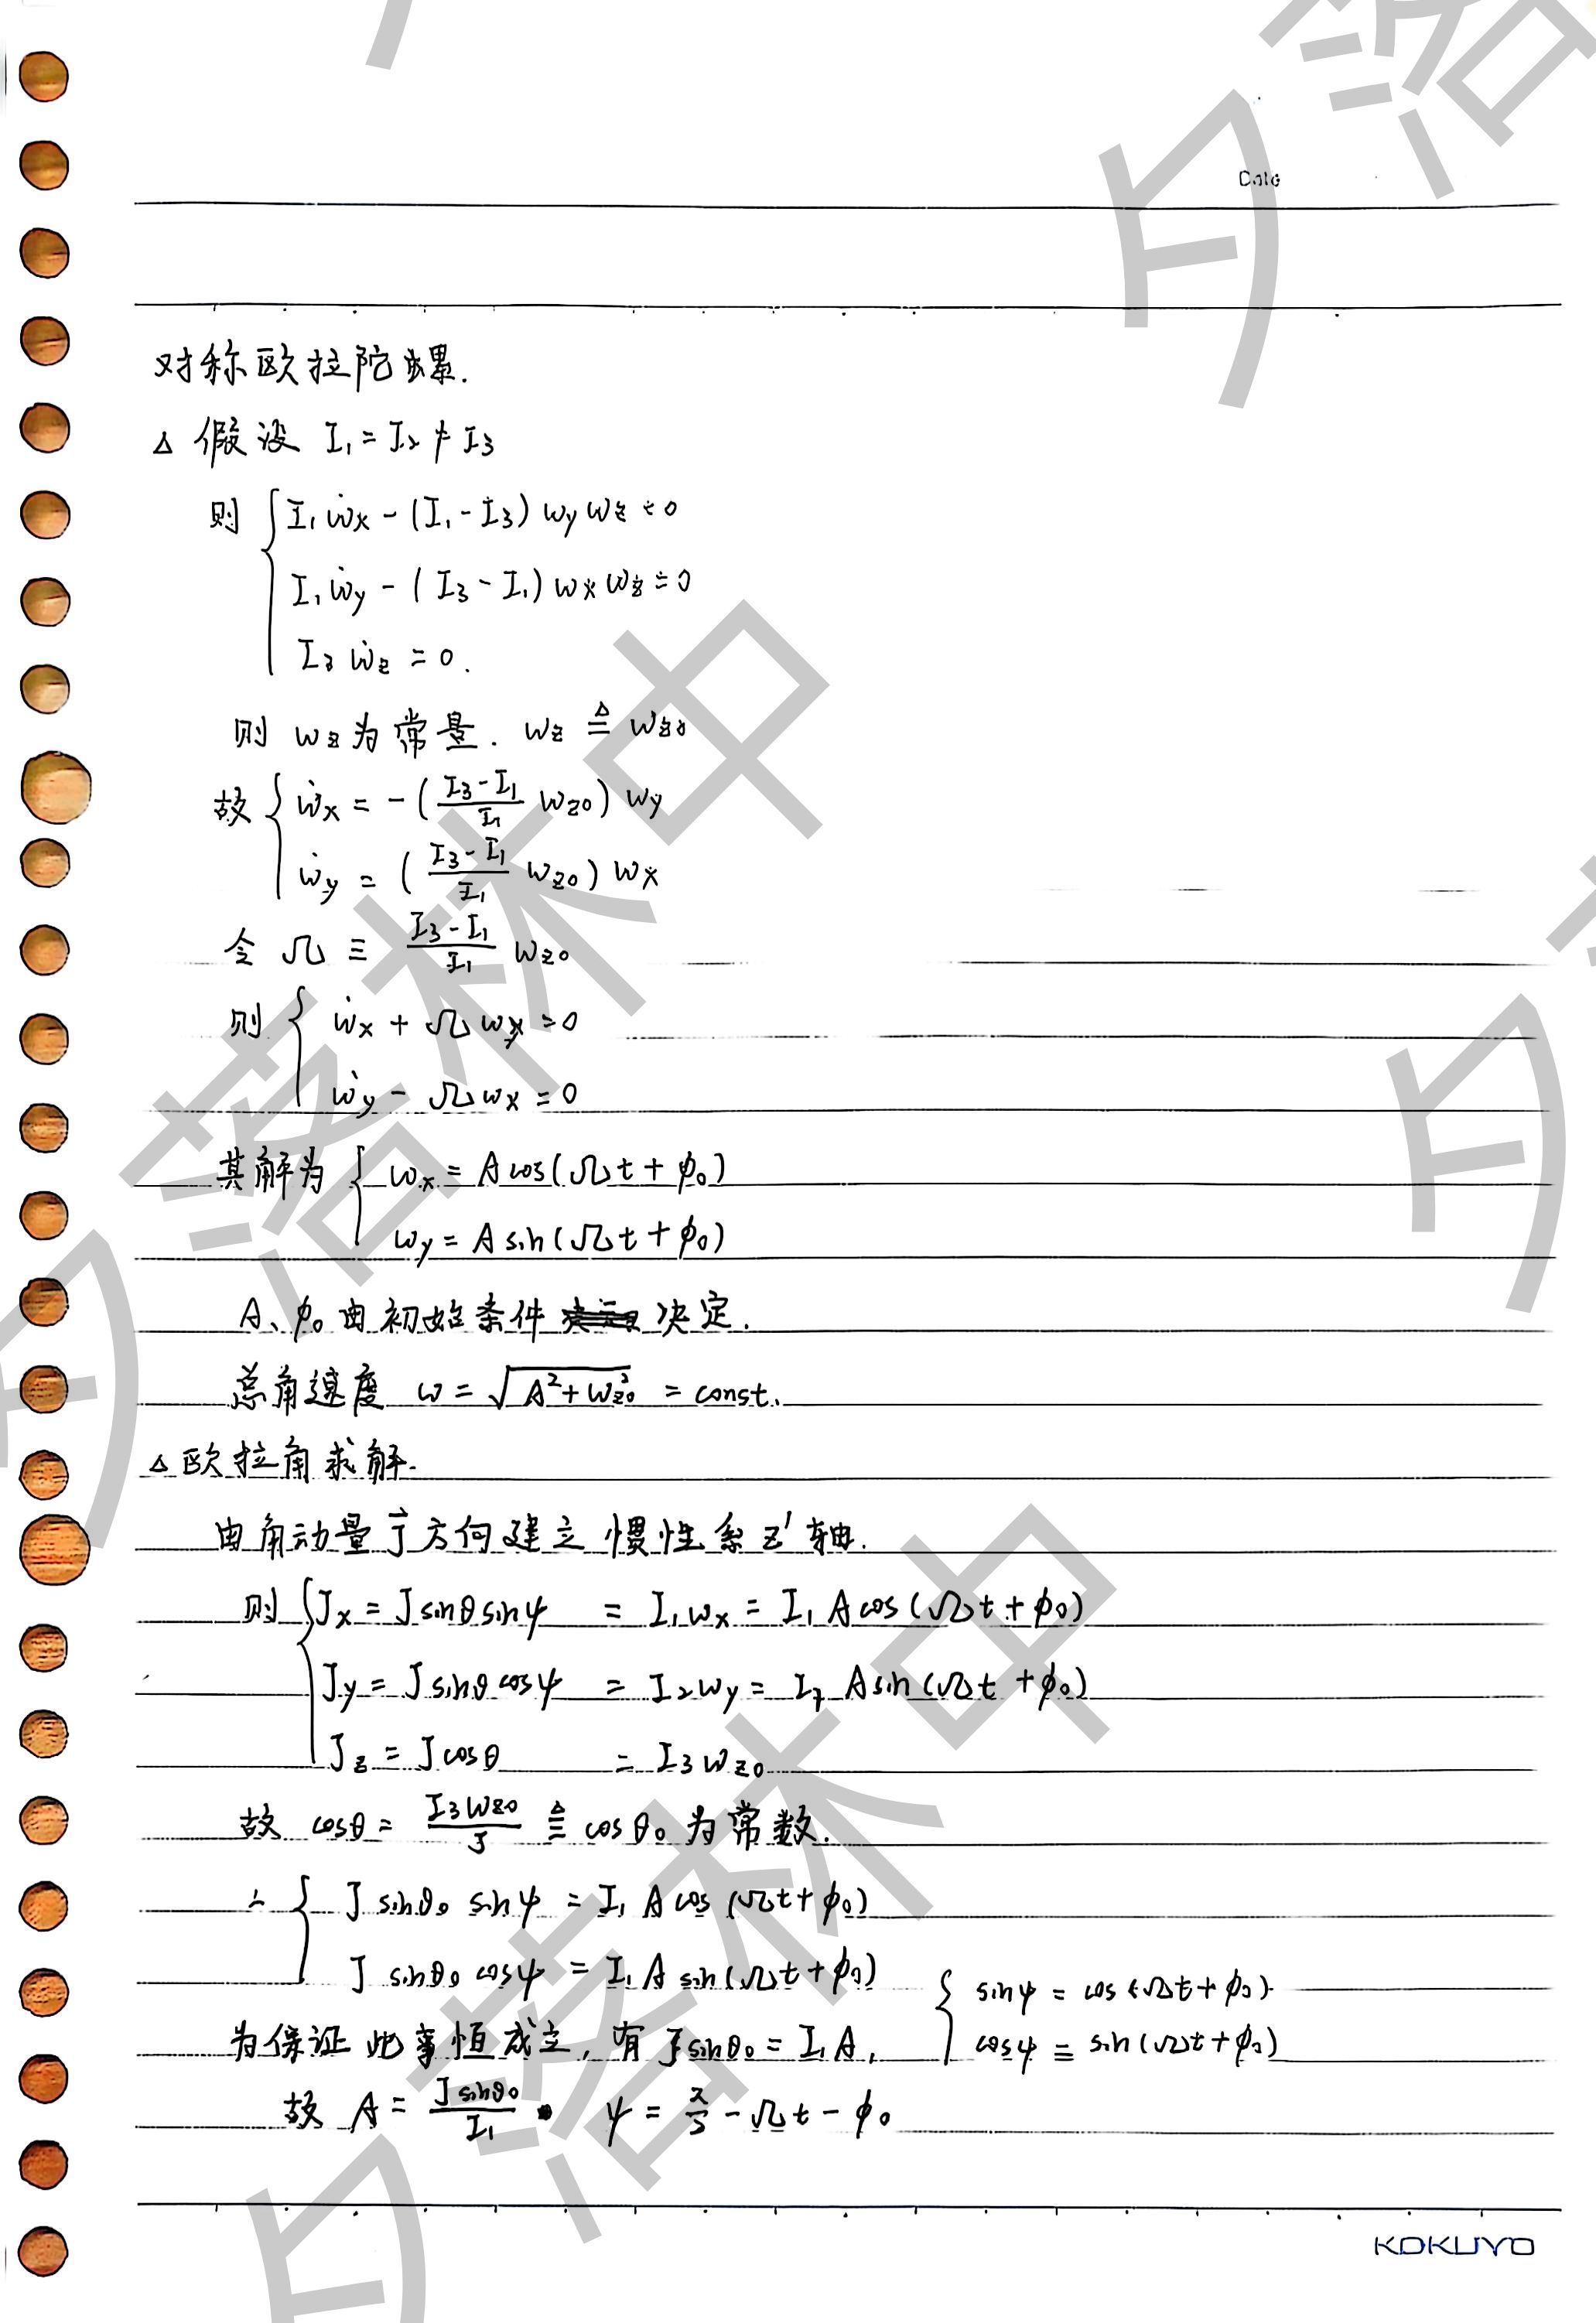 Date
对称欧拉陀螺.
△ 假设 I₁ = I₂ ≠ I₃
则 { I₁ẇx - (I₁ - I₃) wy wz = 0
I₁ẇy - (I₃ - I₁) wx wz = 0
I₃ẇz = 0.
则 wz为常量. wz ≜ wz0
故 { ẇx = -(\frac{I₃-I₁}{I₁} wz0) wy
ẇy = (\frac{I₃-I₁}{I₁} wz0) wx
令 Ω ≡ \frac{I₃-I₁}{I₁} wz0
则 { ẇx + Ω wy = 0
ẇy - Ω wx = 0
其解为 { wx = A cos(Ωt + φ₀)
wy = A sin(Ωt + φ₀)
A、φ₀ 由初始条件 决定.
总角速度 w = √(A² + wz0²) = const.
△ 欧拉角求解.
由角动量 J⃗ 方向建立惯性系 z' 轴.
则 { Jx = J sinθ sinψ = I₁wx = I₁ A cos(Ωt + φ₀)
Jy = J sinθ cosψ = I₂wy = I₂ A sin(Ωt + φ₀)
Jz = J cosθ = I₃wz0
故 cosθ = \frac{I₃wz0}{J} ≜ cosθ₀ 为常数.
∴ { J sinθ₀ sinψ = I₁ A cos(Ωt + φ₀)
J sinθ₀ cosψ = I₁ A sin(Ωt + φ₀)
为保证此事恒成立, 有 J sinθ₀ = I₁A, { sinψ = cos(Ωt + φ₀)
cosψ = sin(Ωt + φ₀)
故 A = \frac{J sinθ₀}{I₁} . ψ = \frac{π}{2} - Ωt - φ₀
KOKUYO
夕落林中
夕落林中
夕落
夕